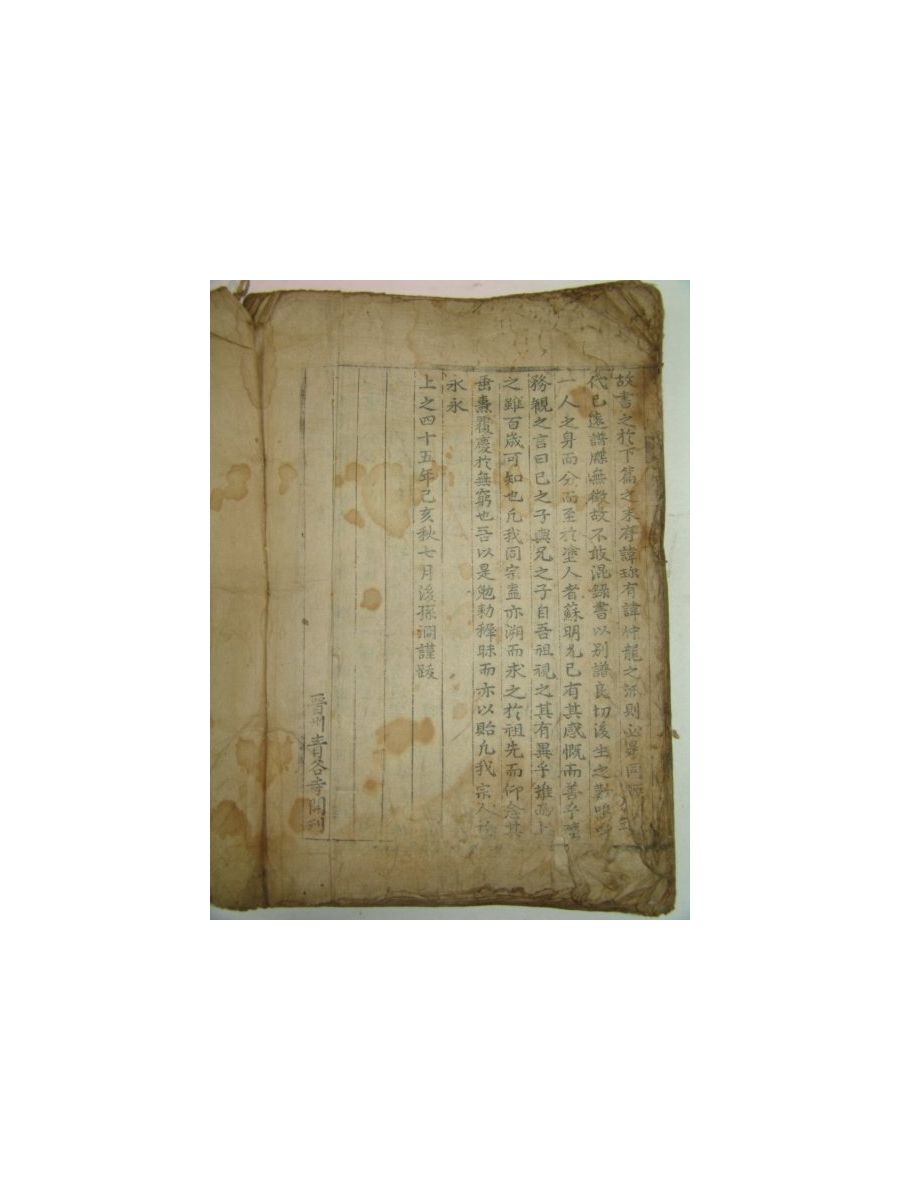 故書之於下篇之末有諱珎有諱仲龍之派則必是同
代已遠譜牒無徵故不敢混錄書以別譜良切後生之對唯
一人之身而分而至於塗人者蘇明允已有其感慨而善乎陸
務觀之言曰己之子與兄之子自吾祖視之其有異乎推而上
之雖百歲可知也凡我同宗盍亦溯而求之於祖先而仰念其
垂裕覆慶於無窮也吾以是勉勳穉昧而亦以貽凡我宗人於
永永
上之四十五年己亥秋七月後孫澗謹跋
晉州靑谷寺開刊